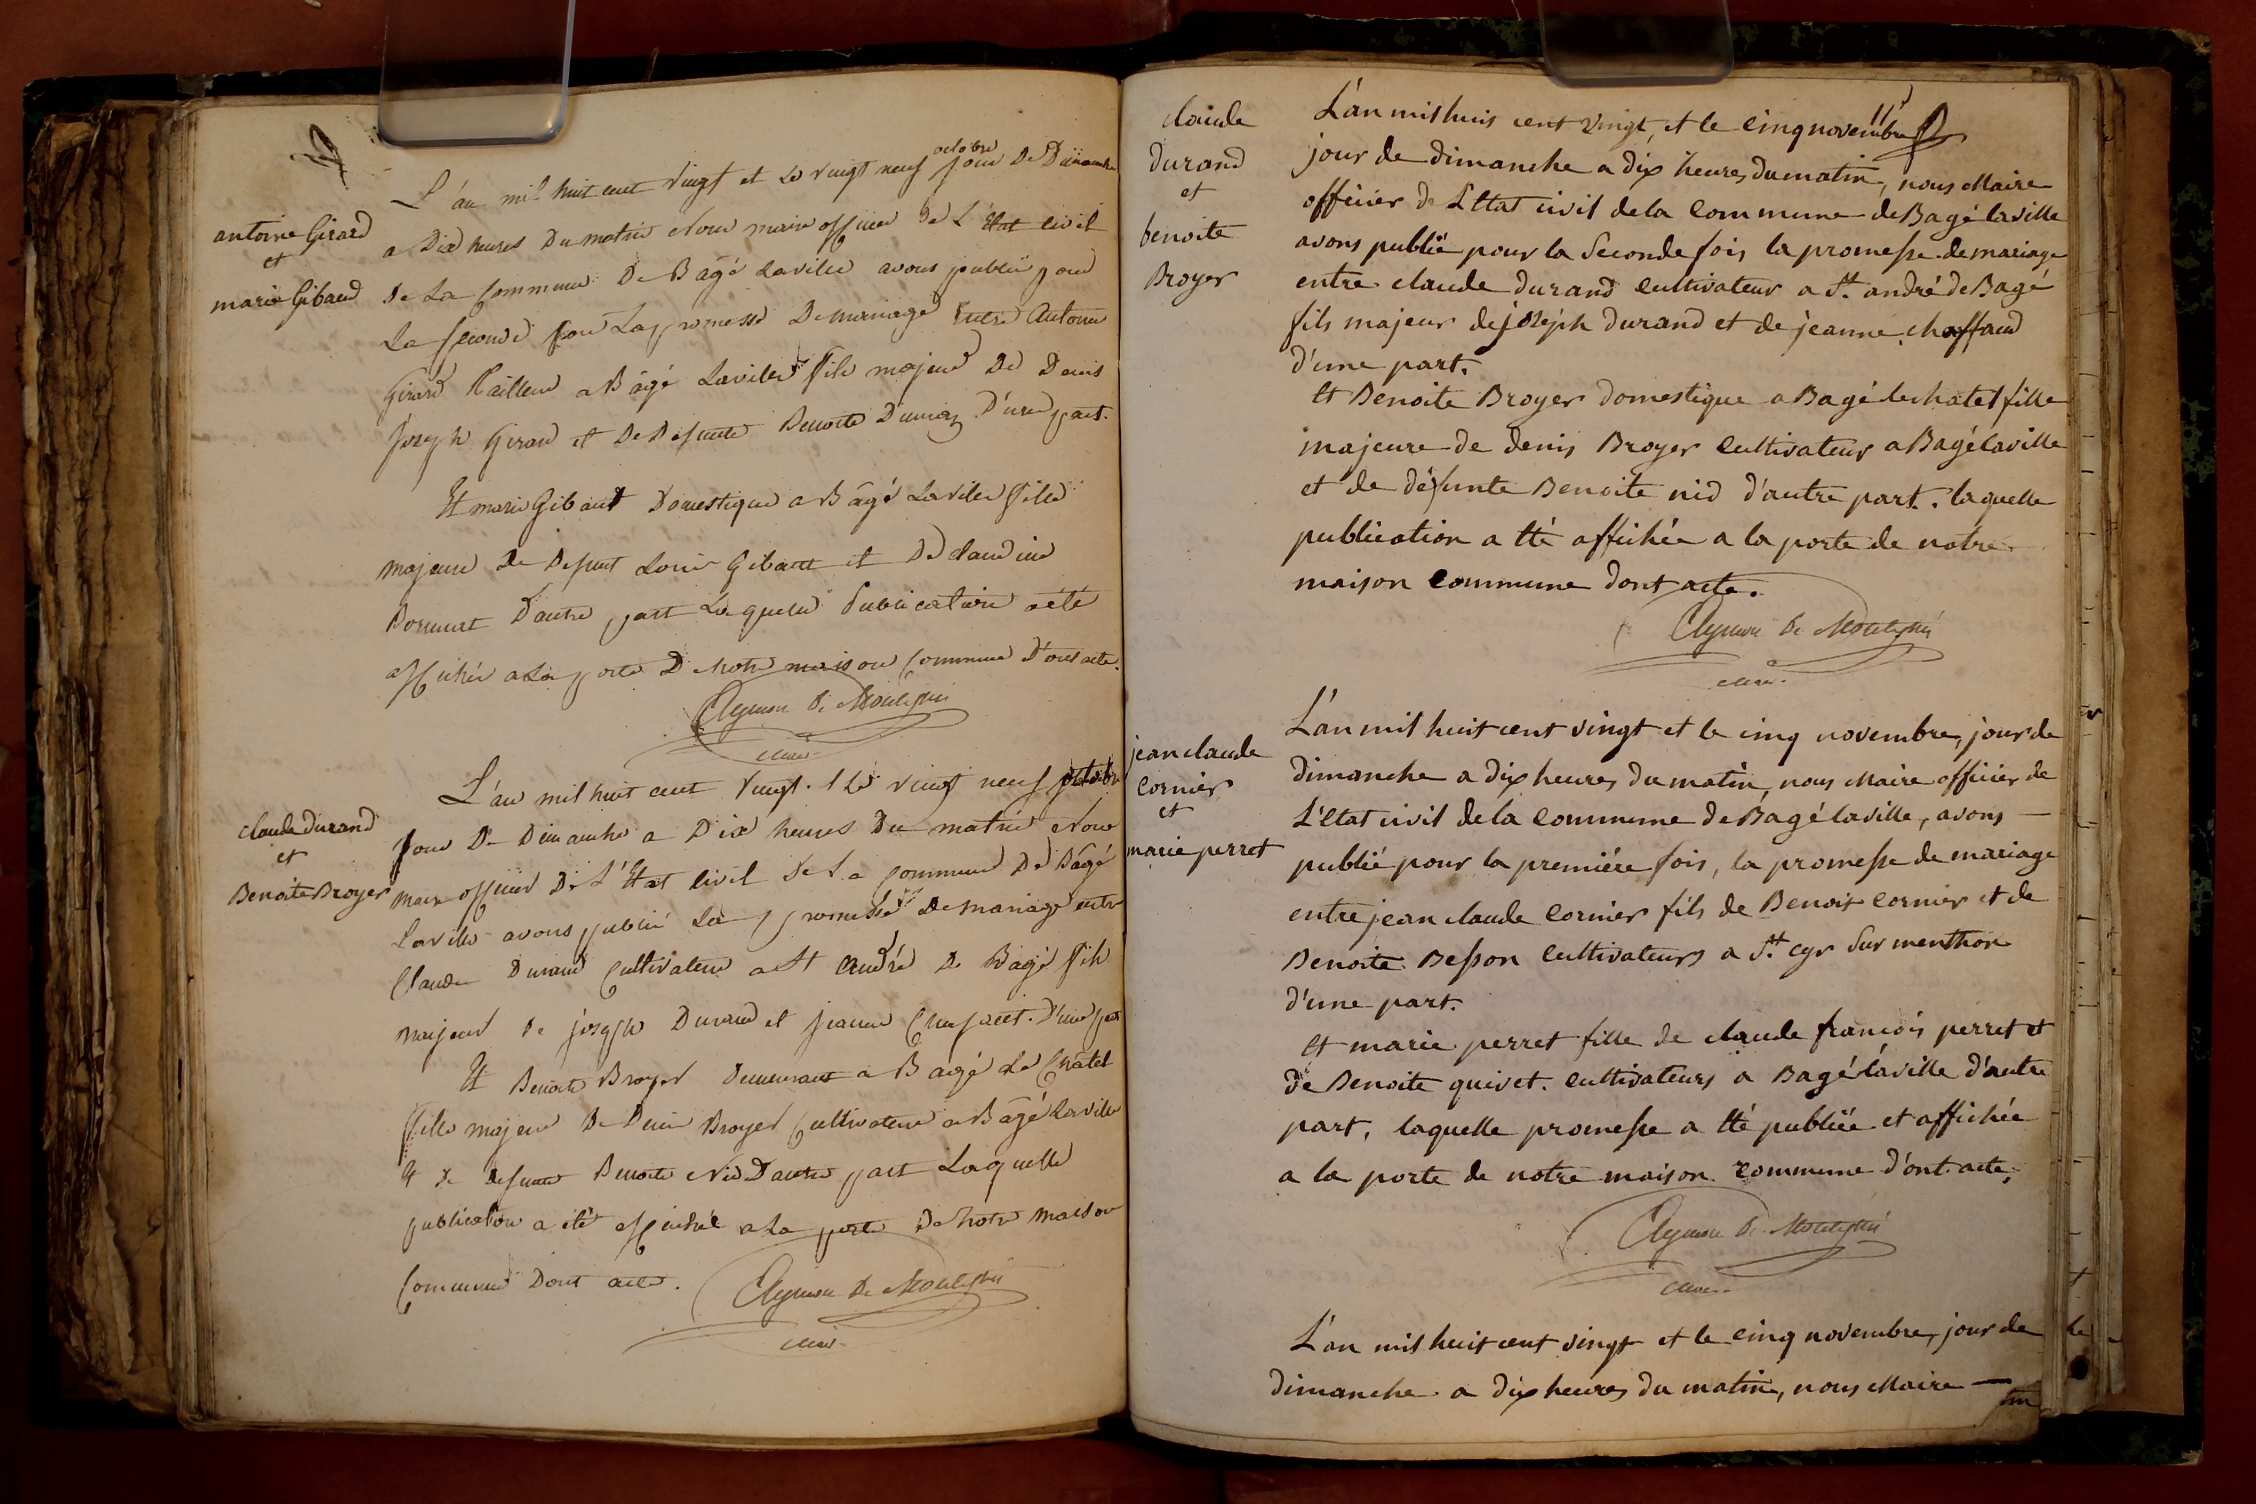 antoine Girard
et
marie Gibaud
L'an mil huit cent vingt et le vingt neuf octobre jour De Dimanche
a Dix heures Du matin Nous maire officier De L'Etat civil
De La Commune De Bâgé Laville avons publié pour
La seconde fois La promesse De mariage Entre Antoine
Girard tailleur a Bâgé Laville fils majeur De Denis
Joseph Girard et De Defunte Benoite D'une part.
Et marie Gibaut Domestique a Bâgé Laville fille
majeure De Defunt Louis Gibaut et De claudine
D'autre part Laquelle Publication a été
affichée a La porte De Notre maison Commune D'ont acte.
maire
claude Durand
et
Benoite Broyer
L'an mil huit cent vingt et le vingt neuf octobre
jour De Dimanche a Dix heures Du matin Nous
maire officier De L'Etat civil De La Commune De Bâgé
Laville avons publié La promesse De mariage entre
Claude Durand Cultivateur a St André De Bagé fils
majeur De joseph Durand et jeanne D'une part
Et Benoite Broyer Demeurant a Bagé Le Chatel
fille majeure De Denis Broyer Cultivateur a Bâgé Laville
Et De defunte Benoite Nid D'autre part Laquelle
publication a été affichée a La porte De Notre maison
Commune Dont acte.
maire
claude
durand
et
benoite
Broyer
L'an mil huit cent vingt, et le cinq novembre
jour de dimanche a dix heures du matin, nous Maire
officier de L'Etat civil de la Commune de Bagé laville
avons publié pour la seconde fois la promesse de mariage
entre claude durand cultivateur a St. andré de Bagé
fils majeur de joseph durand et de jeanne chaffaud
d'une part.
Et Benoite Broyer domestique a Bagé le chatel fille
majeure de denis Broyer cultivateur a Bagé laville
et de défunte Benoite nid d'autre part. laquelle
publication a été affichée a la porte de notre
maison commune dont acte.
maire
jean claude
Cornier
et
marie perret
L'an mil huit cent vingt et le cinq novembre, jour de
dimanche a dix heures du matin, nous Maire officier de
L'Etat civil de la Commune de Bagé laville, avons
publié pour la première fois, la promesse de mariage
entre jean claude Cornier fils de Benoit Cornier et de
Benoite Besson cultivateurs a St. cyr sur menthon
d'une part.
Et marie perret fille de claude francois perret et
de Benoite quivet. cultivateurs a Bagé laville d'autre
part, laquelle promesse a été publiée et affichée
a la porte de notre maison commune d'ont acte,
maire
L'an mil huit cent vingt et le cinq novembre, jour de
dimanche a dix heures du matin, nous Maire